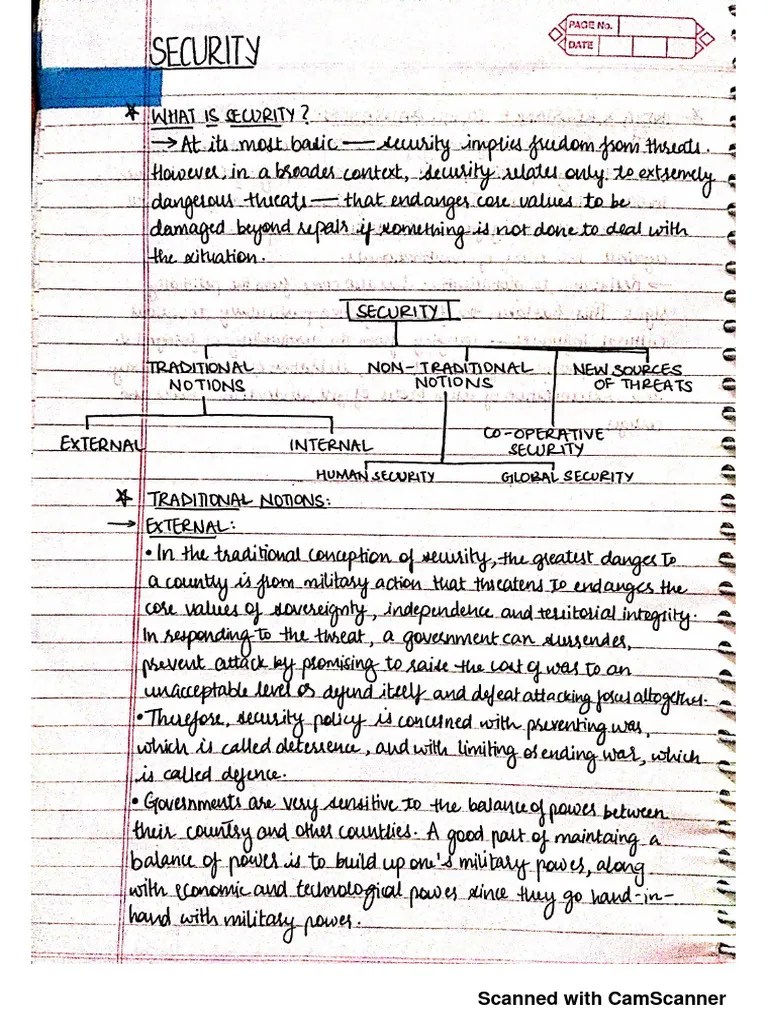 PAGE No.
DATE
SECURITY
* WHAT IS SECURITY?
→ At its most basic — security implies freedom from threats.
However, in a broader context, security relates only to extremely
dangerous threats — that endanger core values to be
damaged beyond repair if something is not done to deal with
the situation.
SECURITY
TRADITIONAL NOTIONS
NON-TRADITIONAL NOTIONS
NEW SOURCES OF THREATS
EXTERNAL
INTERNAL
CO-OPERATIVE SECURITY
HUMAN SECURITY
GLOBAL SECURITY
* TRADITIONAL NOTIONS:
→ EXTERNAL:
• In the traditional conception of security, the greatest danger to
a country is from military action that threatens to endanger the
core values of sovereignty, independence and territorial integrity.
In responding to the threat, a government can surrender,
prevent attack by promising to raise the cost of war to an
unacceptable level or defend itself and defeat attacking forces altogether.
• Therefore, security policy is concerned with preventing war,
which is called deterrence, and with limiting or ending war, which
is called defence.
• Governments are very sensitive to the balance of power between
their country and other countries. A good part of maintaing a
balance of power is to build up one's military power, along
with economic and technological power since they go hand-in-
hand with military power.
Scanned with CamScanner